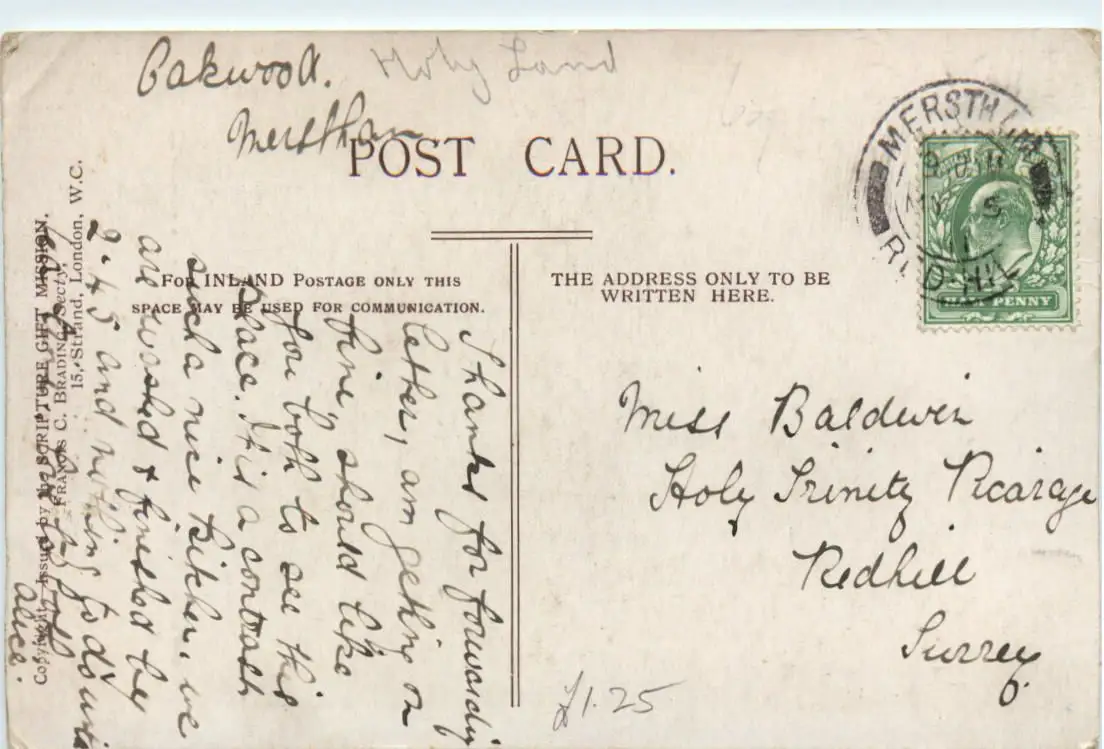 Oakwood.
Holy Land
Merstham
POST CARD.
For INLAND Postage only this
space may be used for communication.
THE ADDRESS ONLY TO BE
WRITTEN HERE.
MERSTHAM
REDHILL
HALFPENNY
Copyright. Issued by the SCRIPTURE GIFT MISSION,
Francis C. Brading, Secty,
15, Strand, London, W.C.
Thanks for forwarding
letter, am getting on
fine, should like
you both to see this
place. It is a contrast
such a nice kitchen, we
are washed & finished by
2-45 and nothing to do until
Alice.
Miss Baldwin
Holy Trinity Vicarage
Redhill
Surrey
£1.25